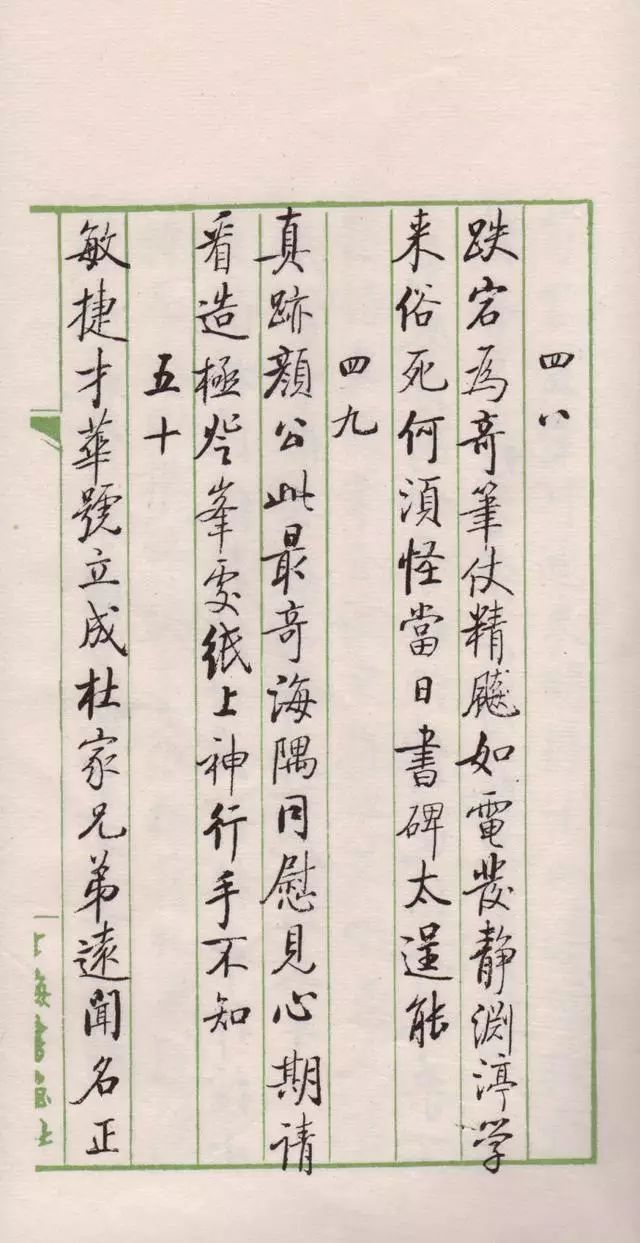 四八
跌宕為奇筆仗精飈如電發静淵渟学
来俗死何須怪當日書碑太逞能
四九
真跡顔公此最奇海隅同慰見心期請
看造極登峯處紙上神行手不知
五十
敏捷才華號立成杜家兄弟遠聞名正
上海書画社